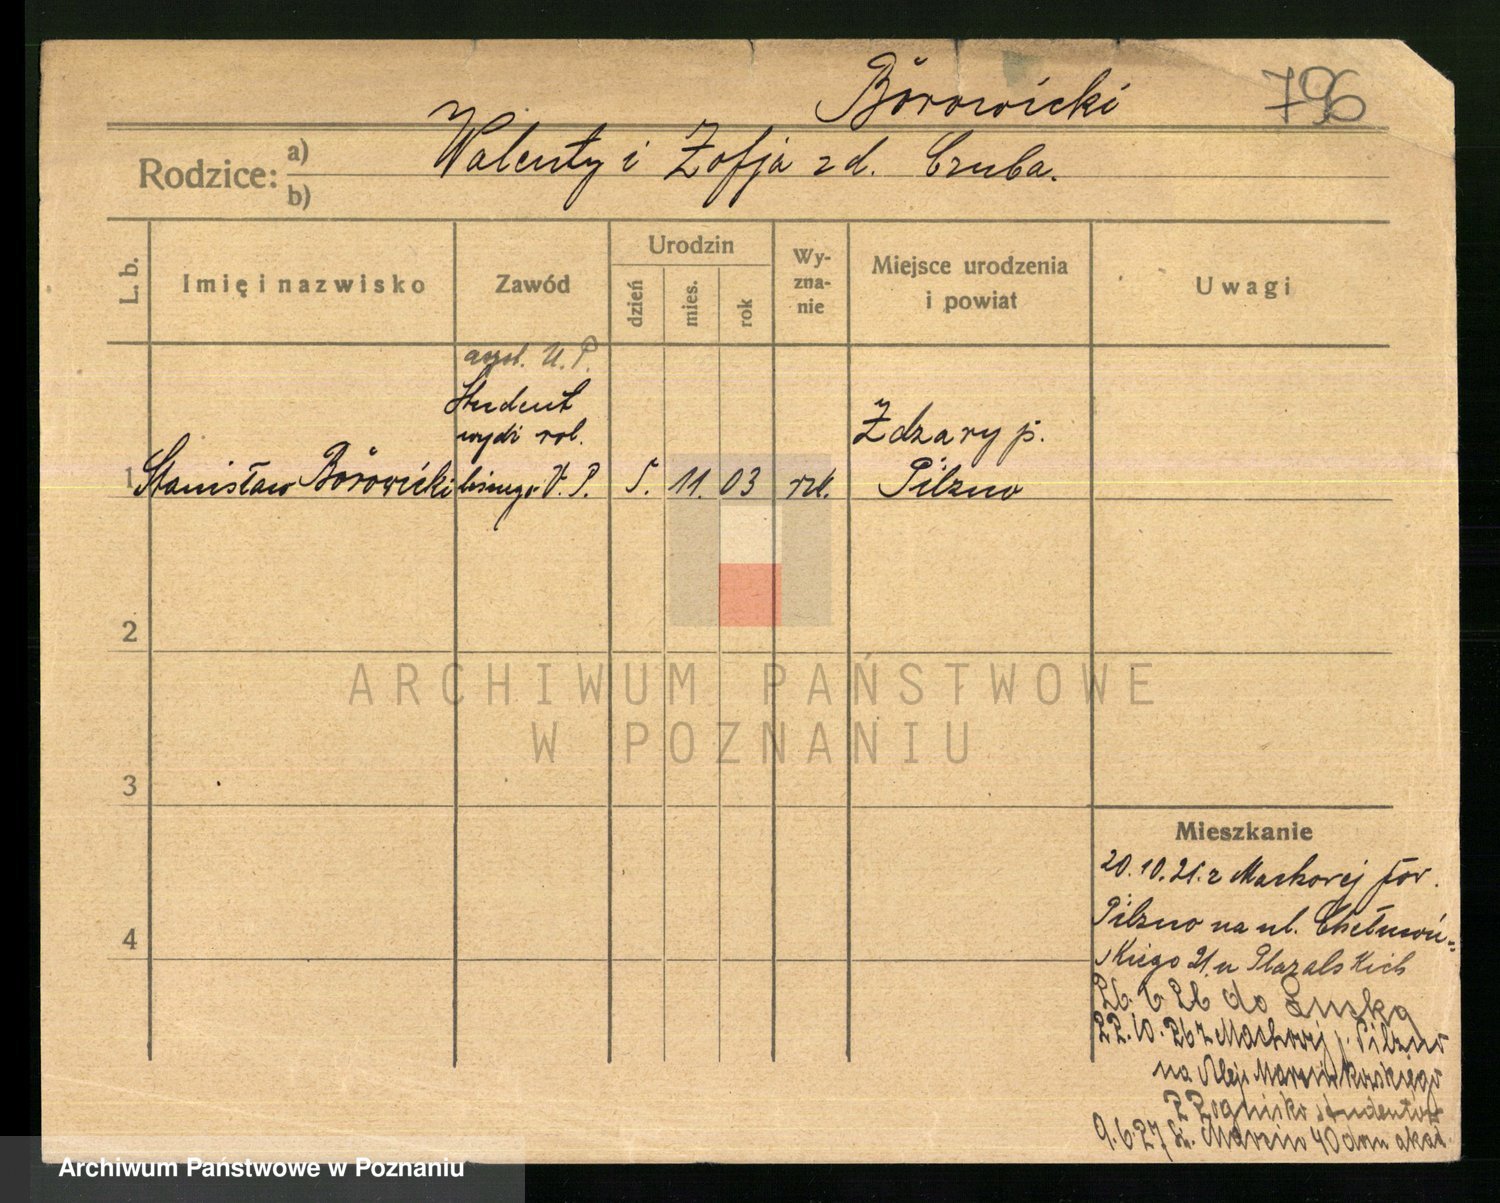 Borowicki
796
Rodzice: a) b)
Walenty i Zofja z d. Czuba.
L. b.
Imię i nazwisko
Zawód
Urodzin
dzień
mies.
rok
Wy-
zna-
nie
Miejsce urodzenia
i powiat
Uwagi
U. P.
Student
wydz. rol.
1 Stanisław Borowicki
leśnego U. P.
5. 11. 03
rzk.
Żdzary p.
Pilzno
2
3
4
Mieszkanie
20.10.21. z Machowej pow.
Pilzno na ul. Chełmoń-
skiego 21. u
26. 6 26 do
22.10.26 z Machowej p. Pilzno
na Aleje Marcinkowskiego
studentów
9.6.27 Św. Marcin 40 dom akad.
ARCHIWUM PAŃSTWOWE
W POZNANIU
Archiwum Państwowe w Poznaniu